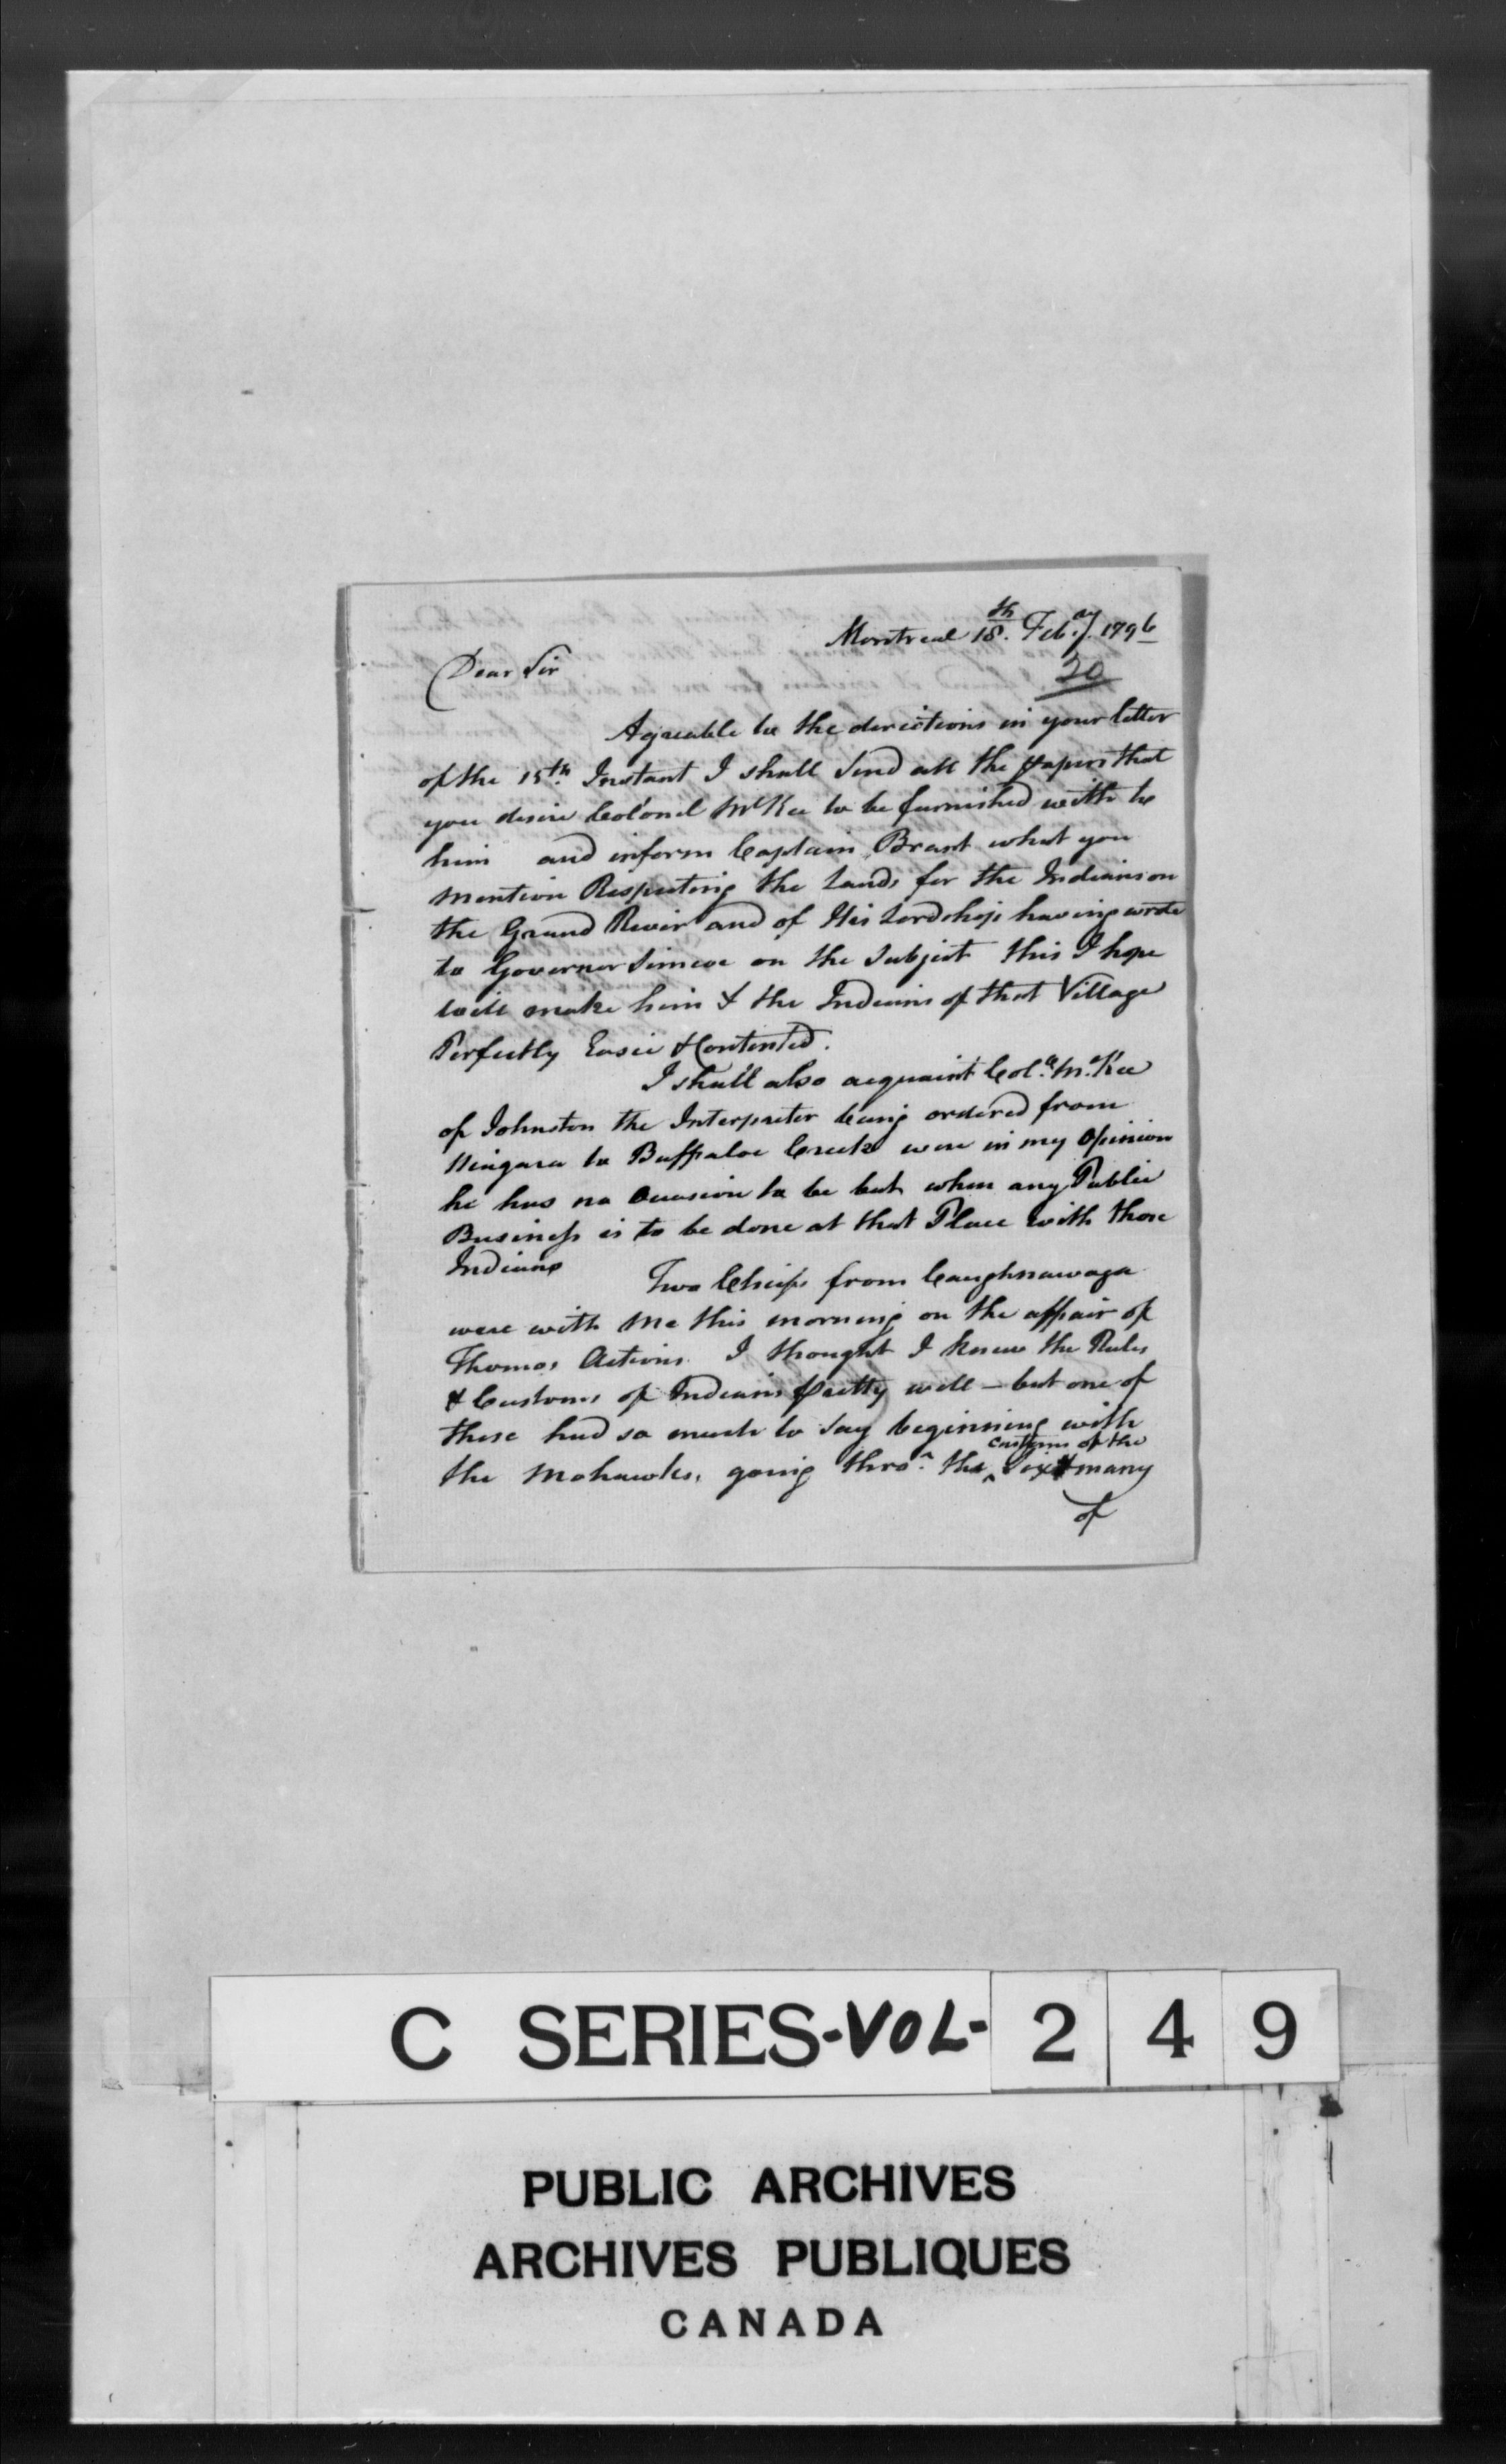 Montreal 18th. Feby. 1796
20
Dear Sir
Agreable to the derictions in your letter
of the 15th. Instant I shall send all the papers that
you desire Colonel McKee to be furnished with to
him and inform Captain Brant what you
mention Respecting the Lands for the Indians on
the Grand River and of His Lordship having wrote
to Governor Simcoe on the Subject this I hope
will make him & the Indians of that Village
Perfectly Easie & Contented.
I shall also acquaint Colo. McKee
of Johnston the Interpreter being ordered from
Niagara to Buffaloe Creek were in my Opinion
he has no Occasion to be but when any Public
Business is to be done at that Place with those
Indians
Two Chiefs from Caughnawaga
were with me this morning on the affair of
Thomas Actions I thought I knew the Rules
& Customs of Indians pretty well – but one of
these had so much to say beginning with
customs of the
the Mohawks, going thro' the ^ Six & many
of
C SERIES-VOL- 2 4 9
PUBLIC ARCHIVES
ARCHIVES PUBLIQUES
CANADA